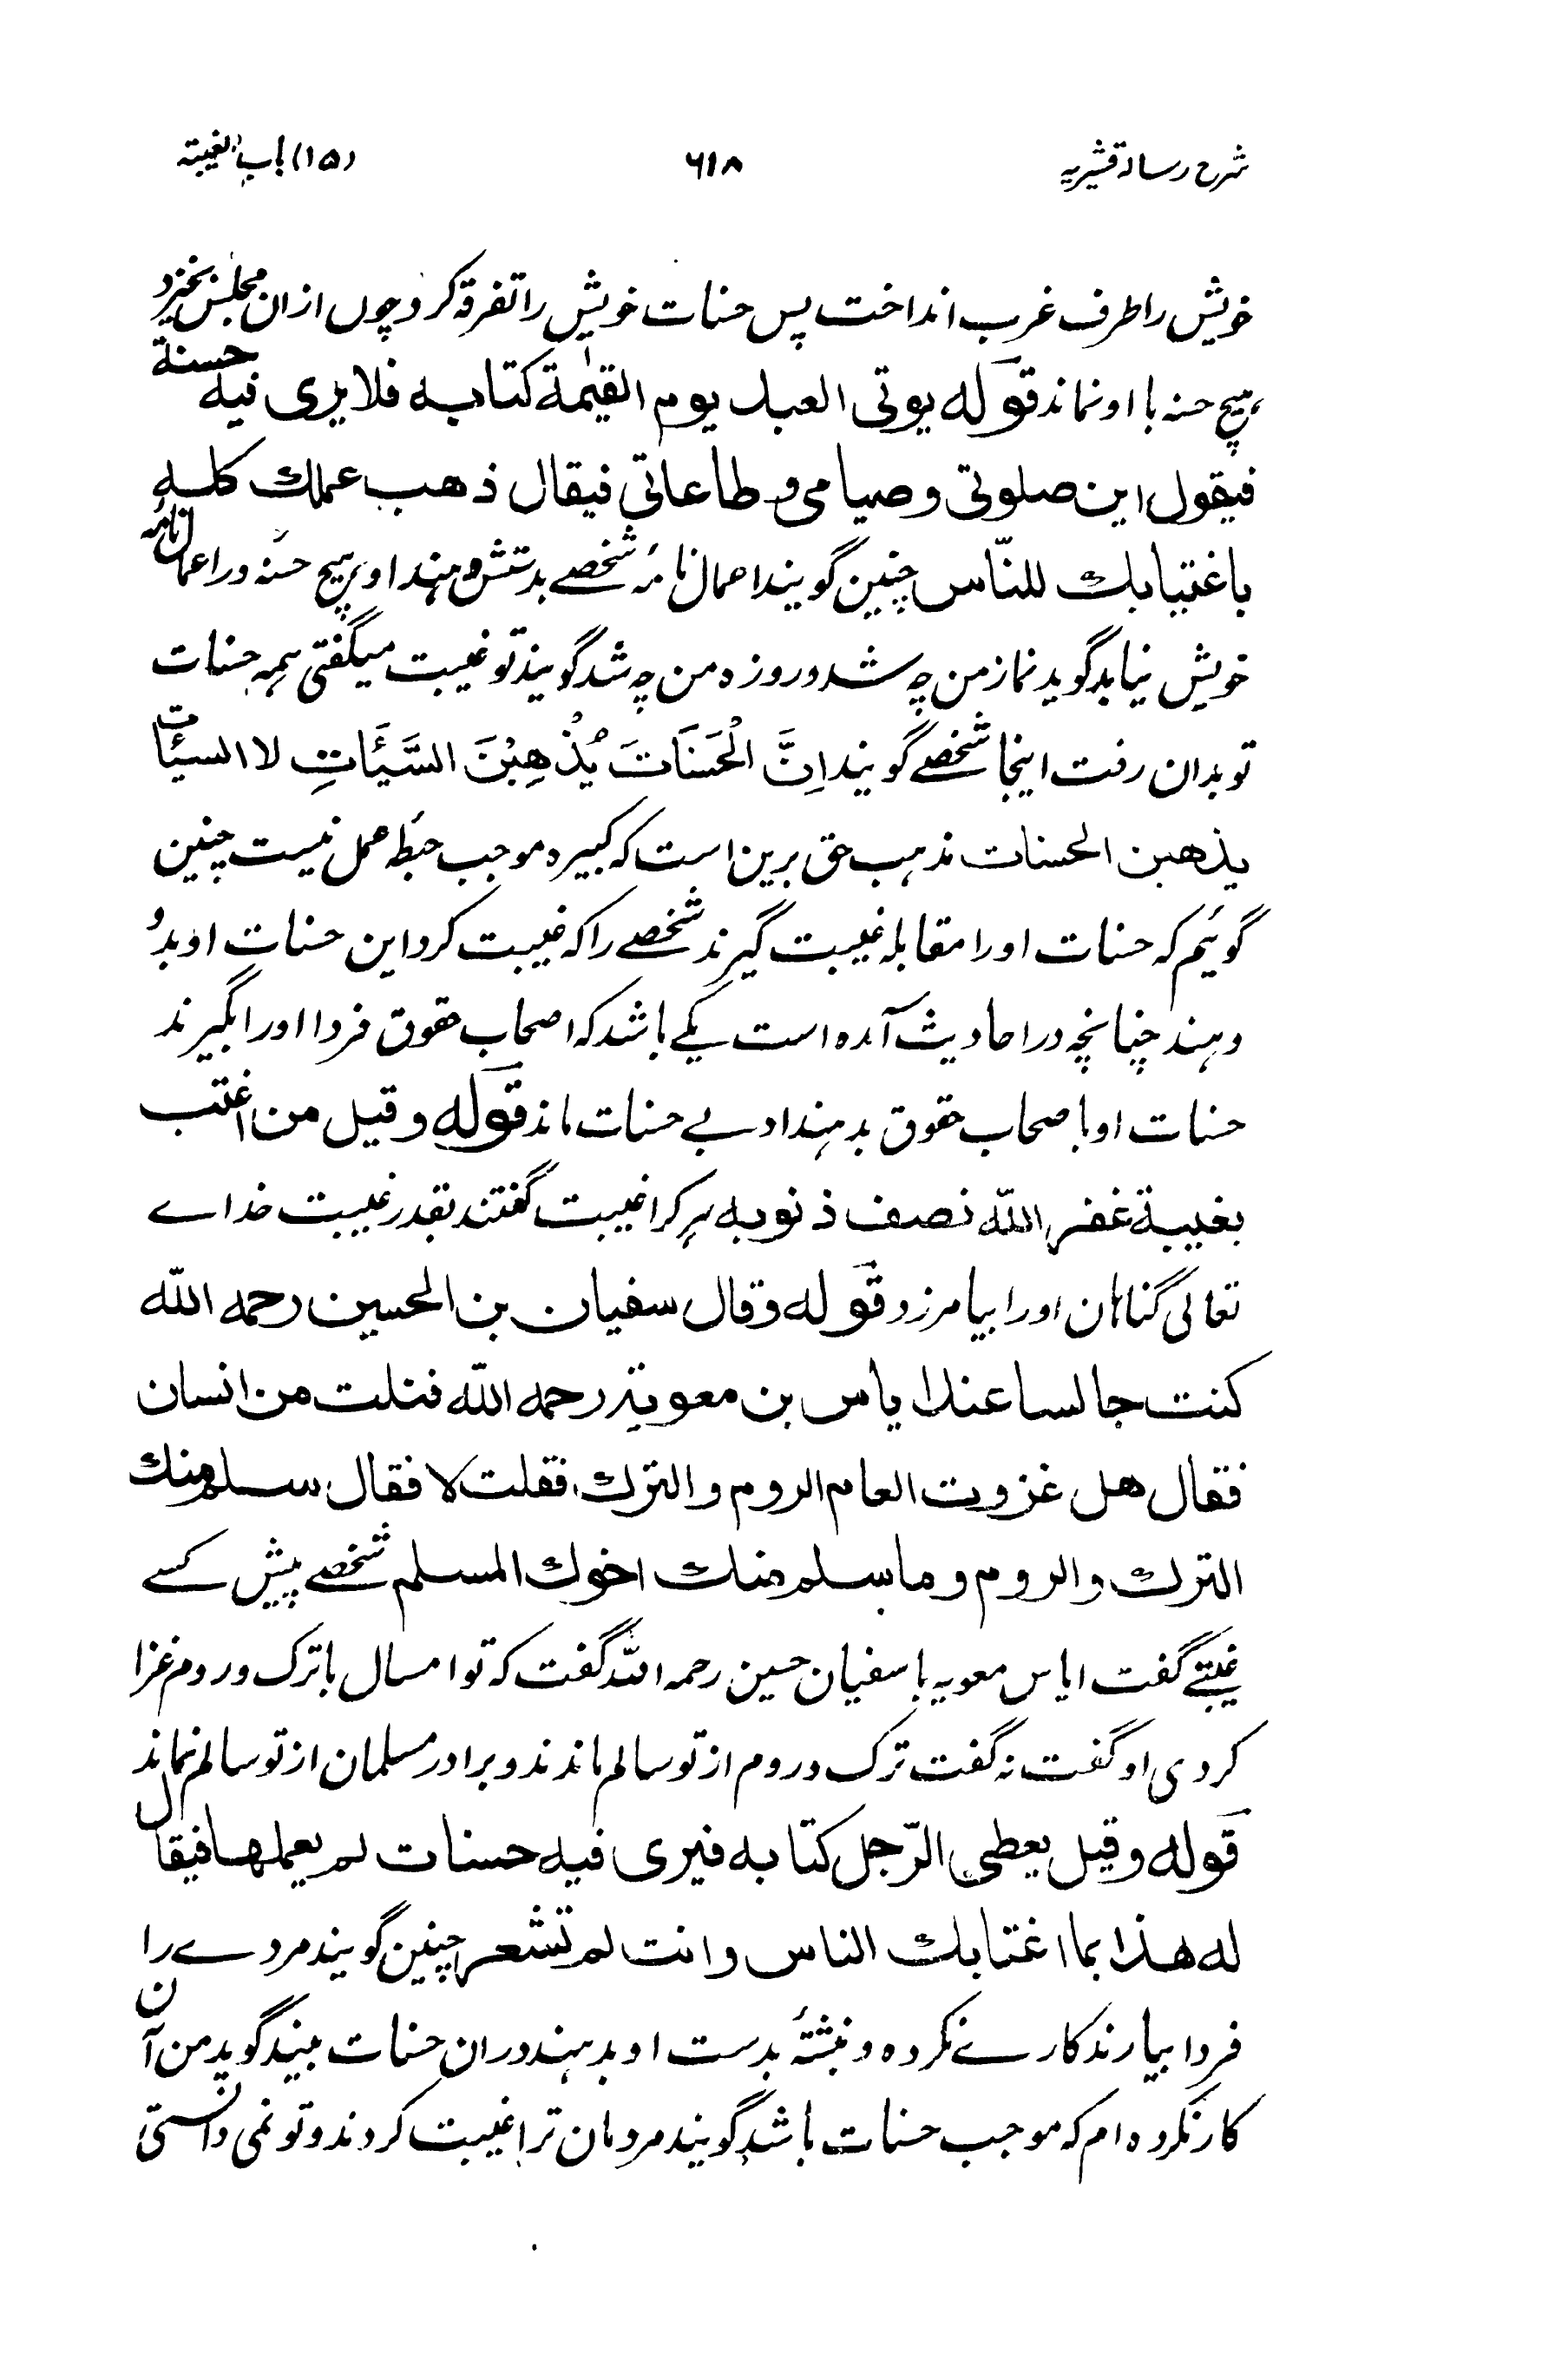 شرح رسالۂ قشیریہ ۶۱۸ (۱۵) باب الغیبتہ
خویش را طرف غرب انداخت پس حسنات خویش را تفرقہ کرد چوں ازان مجلس بخیزد
ہیچ حسنہ با او نماند قولہ یوتی العبد یوم القیٰمۃ کتابہ فلا یری فیہ حسنۃ
فیقول این صلوتی و صیامی و طاعاتی فیقال ذهب عملك کلہ
باغتیابك للنّاس چنین گویند اعمال نامۂ شخصے بدستش دہند او ہیچ حسنہ در اعمال نامہ
خویش نیابد گوید نماز من چہ شد و روزہ من چہ شد گویند تو غیبت میگفتی ہمہ حسنات
تو بدان رفت اینجا شخصے گویند اِنَّ الْحَسَنَاتَ یُذْهِبْنَ السَّیَّئَاتِ لا السیئات
یذهبن الحسنات مذہب حق برین است کہ کبیرہ موجب حبطہ عمل نیست چنین
گوئیم کہ حسنات او را مقابلہ غیبت گیرند شخصے را کہ غیبت کرد این حسنات او بدو
دہند چنانچہ در احادیث آمدہ است یکے باشد کہ اصحاب حقوق فردا او را بگیرند
حسنات او باصحاب حقوق بدہند او بے حسنات ماند قولہ وقیل من اغتب
بغیبۃ غفر اللّٰه نصف ذنوبہ ہر کرا غیبت گفتند بقدر غیبت خداے
تعالی گناہان او را بیامرزد قولہ وقال سفیان بن الحسین رحمہ اللّٰه
کنت جالسا عند ایاس بن معویۃ رحمہ اللّٰه فنلت من انسان
فقال هل غزوت العام الروم والترك فقلت لا فقال سلم منك
الترك والروم وما سلم منك اخوك المسلم شخصے پیش کسے
غیبتے گفت ایاس معویہ با سفیان حسین رحمہ اللّٰہ گفت کہ تو امسال با ترک و روم غزا
کردی او گفت نہ گفت ترک و روم از تو سالم ماندند و برادر مسلمان از تو سالم نماند
قولہ وقیل یعطی الرّجل کتابہ فیری فیہ حسنات لم یعملها فیقال
لہ هذا بما اغتابك الناس وانت لم تشعر چنین گویند مردے را
فردا بیارند کارے نکردہ و نبشتۂ بدست او بدہند دران حسنات بیند گوید من آن
کار نکردہ ام کہ موجب حسنات باشد گویند مردمان ترا غیبت کردند و تو نمی دانستی